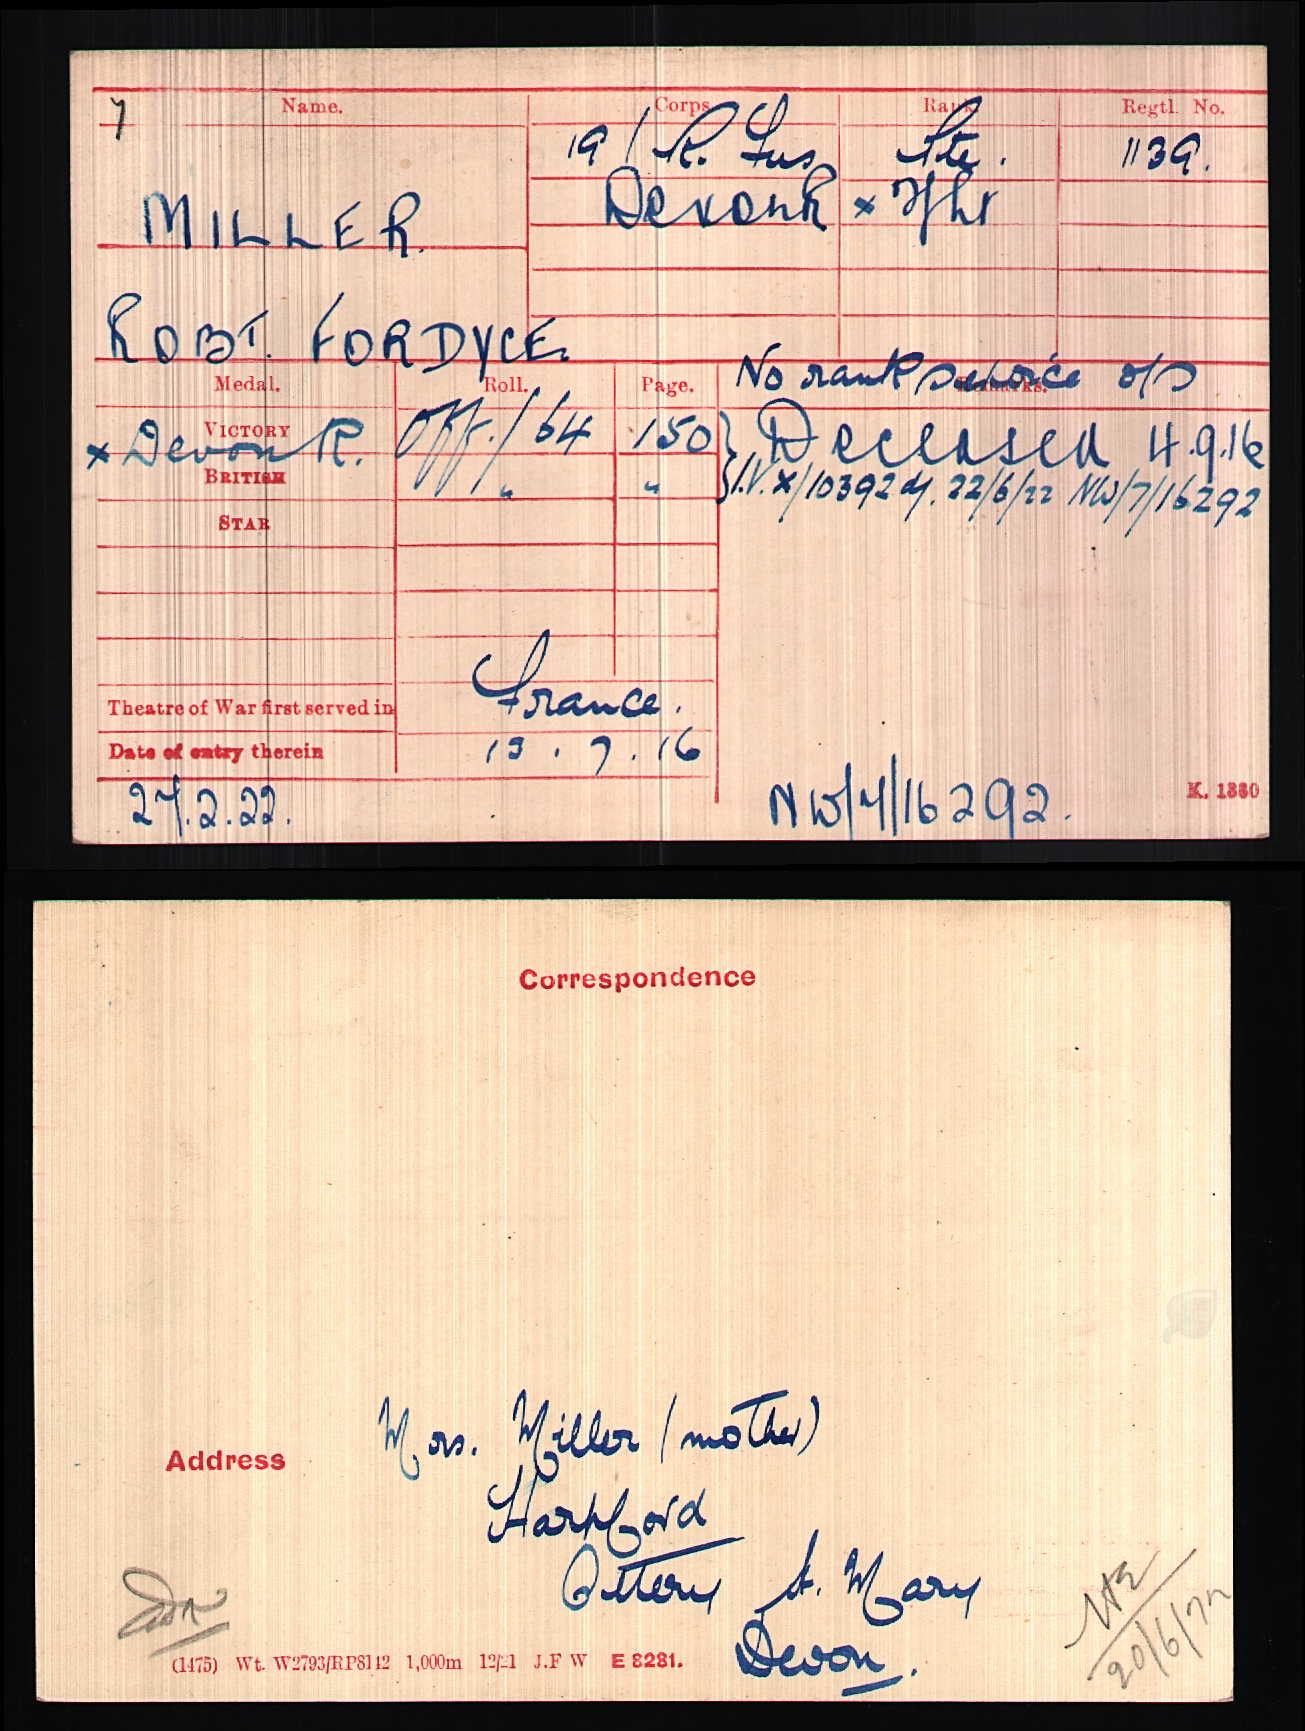 7 Name. Corps. Rank. Regtl. No.
19/R. Fus Pte. 1139.
MILLER. Devon R × 2/Lt
ROBT. FORDYCE.
No rank service o/s
Medal. Roll. Page. Remarks.
VICTORY
× Devon R. Off./64 150 } Deceased 4.9.16
BRITISH " " } I.V. X/10392 d/. 22/6/22 NW/7/16292
STAR
Theatre of War first served in France.
Date of entry therein 13.7.16
27.2.22. NW/7/16292. K. 1380
Correspondence
Address
Mrs. Miller (mother)
Harpford
Ottery St. Mary
Devon.
20/6/22
(1475) Wt. W2793/RP8142 1,000m 12/21 J.F W E 8281.